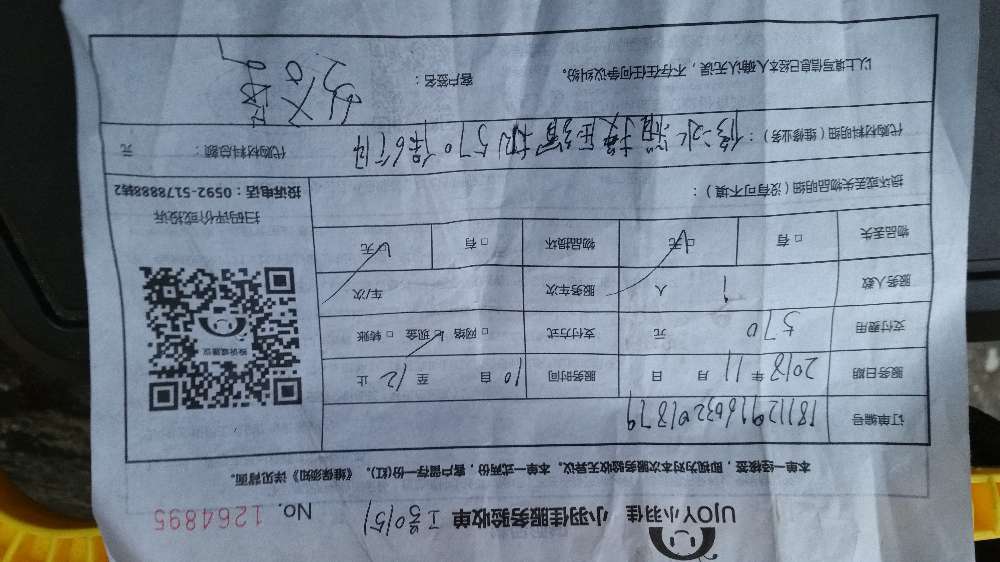 UJOY小羽佳 小羽佳服务验收单 工号0151 No. 1264895
本单一经核签，即视为对本次服务验收无异议。本单一式两份，客户留存一份(红)。《维保须知》详见背面。
订单编号
服务日期 2018年 11月 日 服务时间 10自 至 12止
支付费用 570 元 支付方式 □ 网络 现金 □ 转账
服务人数 1 人 服务车次 车/次
物品丢失 □ 有 □ 无 物品损坏 □ 有 无
损坏或丢失物品明细（没有可不填）：
代购材料明细（维修业务）： 570保6个月 代购材料总额： 元
以上填写信息已经本人确认无误，不存在任何争议纠纷。 客户签名：
投诉或建议
扫码评价或投诉
投诉电话：0592-5178888转2